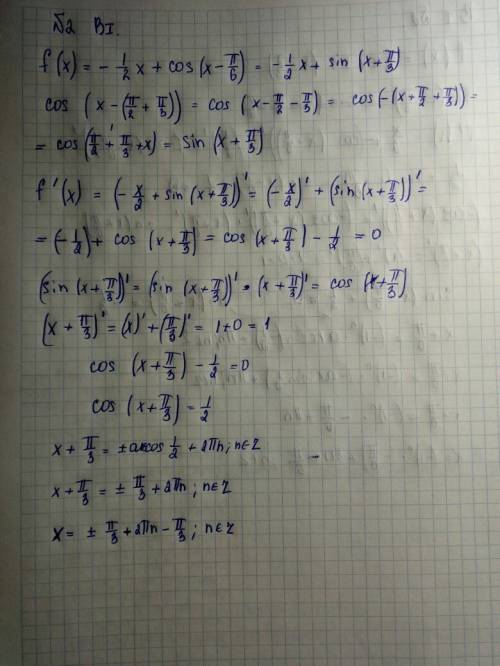 №2 В I.
f(x) = -1/2 x + cos(x - π/6) = -1/2 x + sin(x + π/3)
cos(x - (π/2 + π/3)) = cos(x - π/2 - π/3) = cos(-(x + π/2 + π/3)) =
= cos(π/2 + π/3 + x) = sin(x + π/3)
f'(x) = (-x/2 + sin(x + π/3))' = (-x/2)' + (sin(x + π/3))' =
= (-1/2) + cos(x + π/3) = cos(x + π/3) - 1/2 = 0
(sin(x + π/3))' = (sin(x + π/3))' • (x + π/3)' = cos(x + π/3)
(x + π/3)' = (x)' + (π/3)' = 1 + 0 = 1
cos(x + π/3) - 1/2 = 0
cos(x + π/3) = 1/2
x + π/3 = ± arccos 1/2 + 2πn; n∈Z
x + π/3 = ± π/3 + 2πn; n∈Z
x = ± π/3 + 2πn - π/3; n∈Z